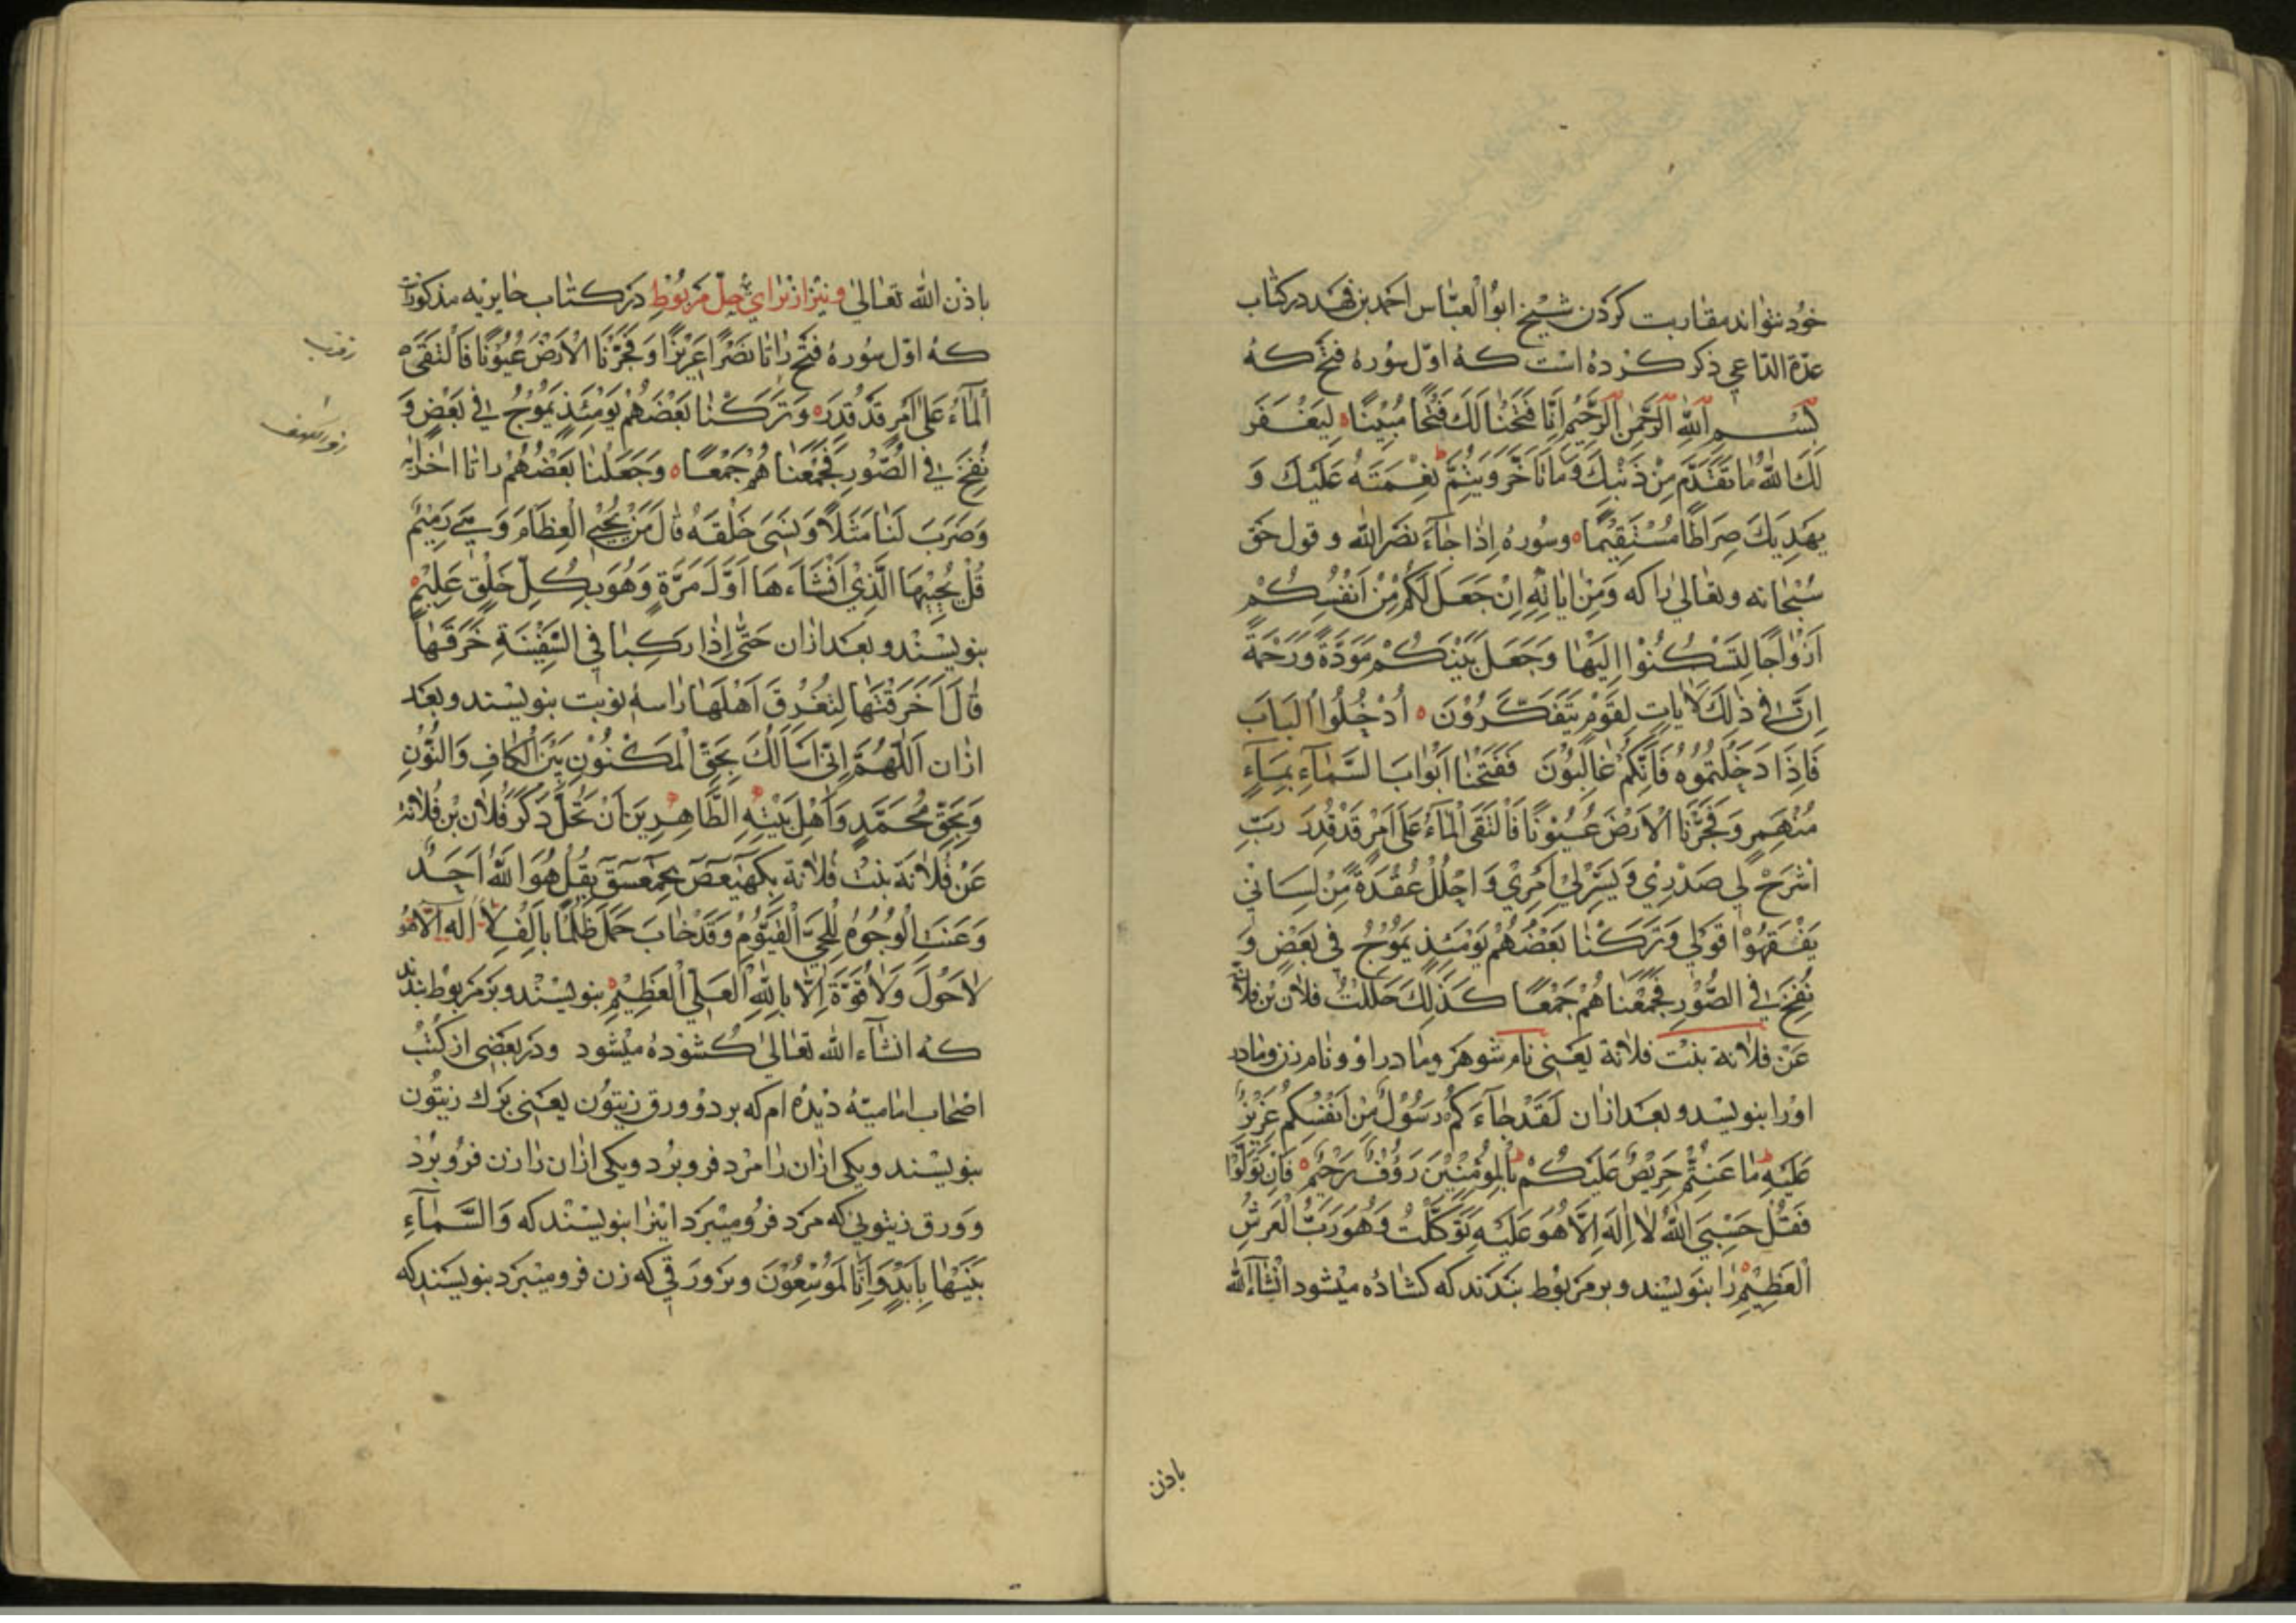 خود نتواند مقاربت کردن شیخ ابوالعباس احمد بن فهد در کتاب
عدة الداعی ذکر کرده است که اول سوره فتح که
بِسْمِ اللهِ الرَّحْمٰنِ الرَّحِیْمِ اِنَّا فَتَحْنٰا لَكَ فَتْحًا مُبِیْنًا لِیَغْفِرَ
لَكَ اللهُ مٰا تَقَدَّمَ مِنْ ذَنْبِكَ وَمٰا تَاَخَّرَ وَیُتِمَّ نِعْمَتَهُ عَلَیْكَ وَ
یَهْدِیَكَ صِرَاطًا مُسْتَقِیْمًا وسوره اِذٰا جٰآءَ نَصْرُ الله و قول حق
سبحانه وتعالی را که وَمِنْ اٰیٰاتِهِ اِنْ جَعَلَ لَکُمْ مِنْ اَنْفُسِکُمْ
اَزْوٰاجًا لِتَسْکُنُوْا اِلَیْهٰا وَجَعَلَ بَیْنَکُمْ مَوَدَّةً وَرَحْمَةً
اِنَّ فِی ذٰلِكَ لَاٰیٰاتٍ لِقَوْمٍ یَتَفَکَّرُوْنَ اُدْخُلُوا الْبَابَ
فَاِذَا دَخَلْتُمُوهُ فَاِنَّکُمْ غٰالِبُوْنَ فَفَتَحْنٰا اَبْوٰابَ السَّمٰآءِ بِمٰآءٍ
مُنْهَمِرٍ وَفَجَّرْنَا الْاَرْضَ عُیُوْنًا فَالْتَقَی الْمٰآءُ عَلٰی اَمْرٍ قَدْ قُدِرَ رَبِّ
اشْرَحْ لِی صَدْرِیْ وَیَسِّرْ لِیْ اَمْرِیْ وَاحْلُلْ عُقْدَةً مِنْ لِسَانِی
یَفْقَهُوْا قَوْلِی وَتَرَکْنٰا بَعْضَهُمْ یَوْمَئِذٍ یَمُوْجُ فِی بَعْضٍ وَ
نُفِخَ فِی الصُّوْرِ فَجَمَعْنٰاهُمْ جَمْعًا کَذٰلِكَ حَلَلْتُ فلان بن فلانة
عَنْ فلانة بنت فلانة یعنی نام شوهر ومادر او و نام زن ومادر
او را بنویسد و بعد ازان لَقَدْ جٰآءَکُمْ رَسُوْلٌ مِنْ اَنْفُسِکُمْ عَزِیْزٌ
عَلَیْهِ مٰا عَنِتُّمْ حَرِیْصٌ عَلَیْکُمْ بِالْمُؤْمِنِیْنَ رَؤُفٌ رَحِیْمٌ فَاِنْ تَوَلَّوْا
فَقُلْ حَسْبِیَ اللهُ لٰا اِلٰهَ اِلَّا هُوَ عَلَیْهِ تَوَکَّلْتُ وَهُوَ رَبُّ الْعَرْشِ
الْعَظِیْمِ را بنویسند و بر مربوط بندند که کشاده میشود انشاءالله
باذن
باذن الله تعالی و نیز از برای حل مربوط در کتاب حایریه مذکور است
که اول سوره فتح را تا نَصْرًا عَزِیْزًا وَفَجَّرْنَا الْاَرْضَ عُیُوْنًا فَالْتَقَی
الْمٰآءُ عَلٰی اَمْرٍ قَدْ قُدِرَ وَتَرَکْنٰا بَعْضَهُمْ یَوْمَئِذٍ یَمُوْجُ فِی بَعْضٍ وَ
نُفِخَ فِی الصُّوْرِ فَجَمَعْنٰاهُمْ جَمْعًا وَجَعَلْنٰا بَعْضُهُمْ را تا اخر ایه
وَضَرَبَ لَنٰا مَثَلًا وَنَسِیَ خَلْقَهُ قٰالَ مَنْ یُحْیِی الْعِظَامَ وَهِیَ رَمِیْمٌ
قُلْ یُحْیِیْهَا الَّذِیْ اَنْشَاَءَهَا اَوَّلَ مَرَّةٍ وَهُوَ بِکُلِّ خَلْقٍ عَلِیْمٌ
بنویسند و بعد ازان حَتّٰی اِذٰا رَکِبٰا فِی السَّفِیْنَةِ خَرَقَهٰا
قٰالَ اَخَرَقْتَهٰا لِتُغْرِقَ اَهْلَهٰا را سه نوبت بنویسند و بعد
ازان اَللّٰهُمَّ اِنِّی اَسْاَلُكَ بِحَقِّ الْمَکْنُوْنِ بَیْنَ الْکٰافِ وَالنُّوْنِ
وَبِحَقِّ مُحَمَّدٍ وَاَهْلِ بَیْتِهِ الطَّاهِرِیْنَ اَنْ تَحُلَّ ذَکَرَ فُلٰان بْن فُلٰانة
عَنْ فُلٰانَة بنت فُلٰانة بِکٓهٰیٰعٓصٓ بِحٰمٓعٓسٓقٓ بِقُلْ هُوَ اللهُ اَحَدٌ
وَعَنَتِ الْوُجُوْهُ لِلْحَیِّ الْقَیُّوْمِ وَقَدْ خٰابَ مَنْ حَمَلَ ظُلْمًا بِاَلْفِ لٰا اِلٰهَ اِلَّا هُوَ
لٰا حَوْلَ وَلٰا قُوَّةَ اِلَّا بِاللهِ الْعَلِیِّ الْعَظِیْمِ بنویسند و بر مربوط بندند
که انشآءالله تعالی کشوده میشود و در بعضی از کتب
اصحاب امامیه دیده ام که بر دو ورق زیتون یعنی برك زیتون
بنویسند و یکی ازان را مرد فرو برد و یکی ازان را زن فرو برد
و ورق زیتونی که مرد فرو میبرد اینرا بنویسند که وَالسَّمٰآءَ
بَنَیْنٰهٰا بِاَیْدٍ وَاِنَّا لَمُوْسِعُوْنَ و بر ورقی که زن فرو میبرد بنویسند که